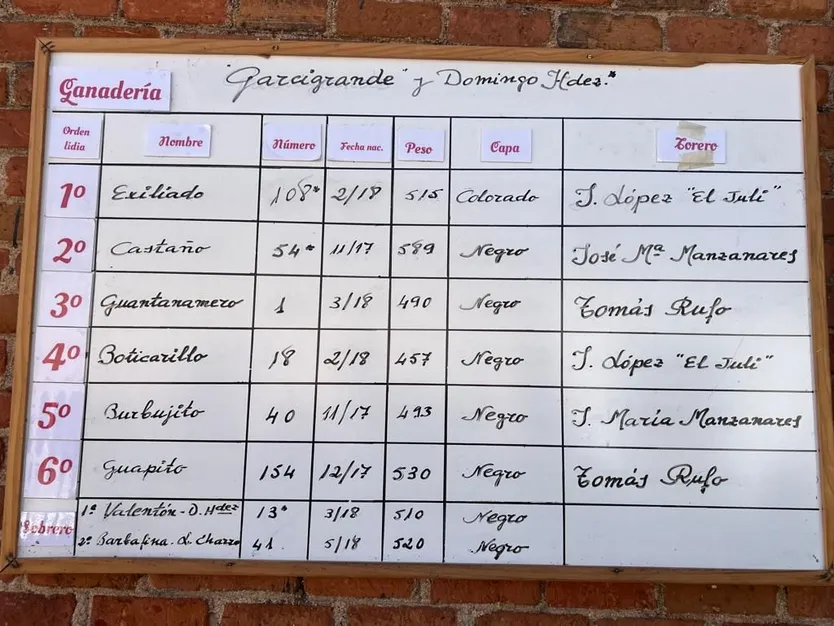 Ganadería "Garcigrande" y Domingo Hdez.*
Orden lidia Nombre Número Fecha nac. Peso Capa Torero
1º Exiliado 108* 2/18 515 Colorado J. López "El Juli"
2º Castaño 54* 11/17 589 Negro José Mª Manzanares
3º Guantanamero 1 3/18 490 Negro Tomás Rufo
4º Boticarillo 18 2/18 457 Negro J. López "El Juli"
5º Burbujito 40 11/17 493 Negro J. María Manzanares
6º Guapito 154 12/17 530 Negro Tomás Rufo
Sobrero 1º Valentón - D. Hdez 13* 3/18 510 Negro
2º Barbafina. L. Charro 41 5/18 520 Negro